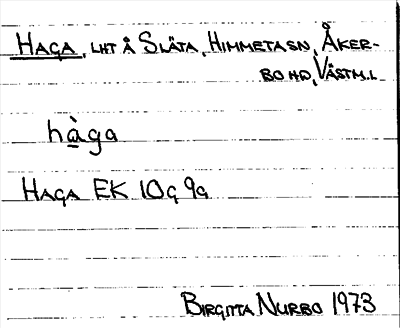 HAGA, LHT Å SLÄTA, HIMMETA SN, ÅKER-
BO HD, VÄSTM.L
hàga
HAGA EK 10G 9a
BIRGITTA NURBO 1973